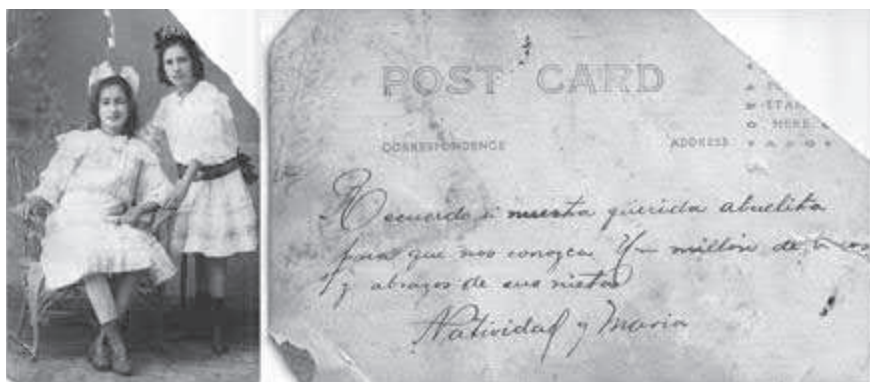 POST CARD
CORRESPONDENCE
ADDRESS
HERE
Recuerdo a nuestra querida abuelita
para que nos conozca. Un millón de
y abrazos de sus nietas
Natividad y Maria